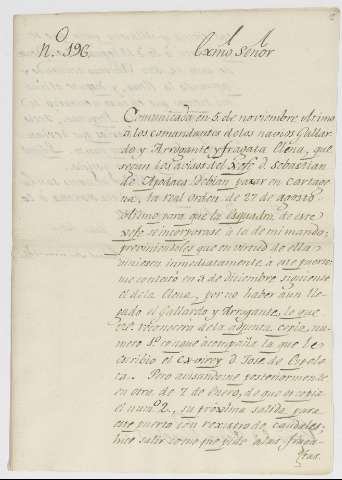 N.º 196.
Exmo Señor
Comunicada en 5 de noviembre ultimo
a los comandantes de los navios Gallar
do y Arrogante y fragata Elena, que
segun los avisos del Xefe d. Sebastian
de Apodaca debian parar en Cartage
na, la real orden de 27 de agosto
ultimo para que la esquadra de este
xefe se incorporase a la de mi mando,
previniendoles que en virtud de ella
viniesen inmediatamente a este puerto;
me contextó en 3 de diciembre siguiente
el de la Elena, por no haber aun lle
gado el Gallardo y Arrogante, lo que
reconocera de la adjunta copia nu
mero 1º con que acompaña la que le
escribio el ex-virrey d. Jose de Espele
ta. Pero avisandome posteriormente
en otro de 7 de Enero, de que es copia
el numº 2, su proxima salida para
este puerto con registro de caudales;
hice salir como me pide a las fraga